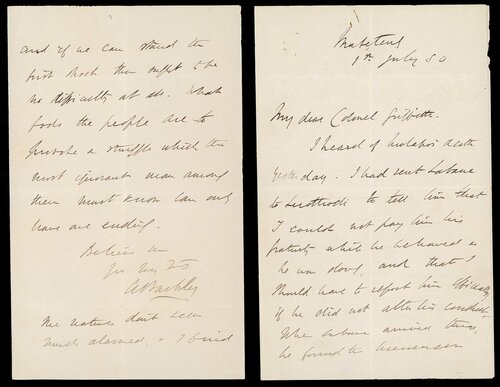 and if we can stand the
first rush there ought to be
no difficulty at all. What
fools the people are to
provoke a struggle which the
most ignorant man among
them must know can only
have one ending.
Believe me
A Barkly
The natives dont seem
much alarmed. &
Mafeteng
1st July 80
My dear Colonel Griffith.
I heard of death
yesterday. I had sent
to to tell him that
I could not pay him his
gratuity while he behaved as
he was doing, and that I
should have to report him officially
if he did not alter his conduct.
When arrived there
he found the messenger